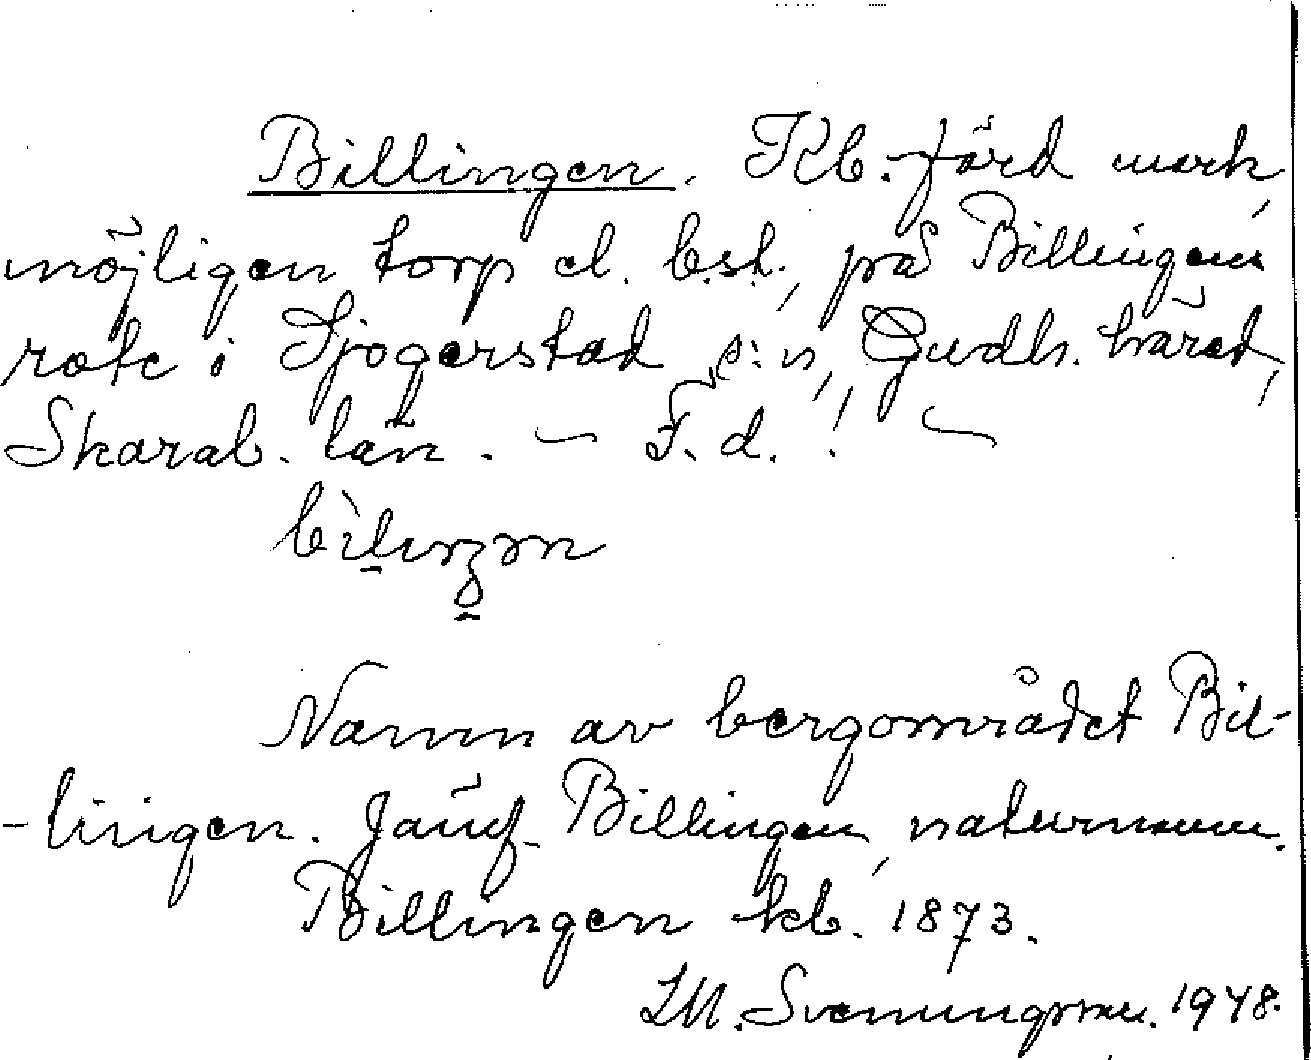 Billingen. Kb.-förd mark,
möjligen torp el. bst., på Billingens
rote i Sjogerstad s:n, Gudh. härad,
Skarab. län. – F. d.! –
Namn av bergområdet Bil-
-lingen. Jämf. Billingen, naturnamn.
Billingen kb. 1873.
I.M. Svenungsson. 1948.